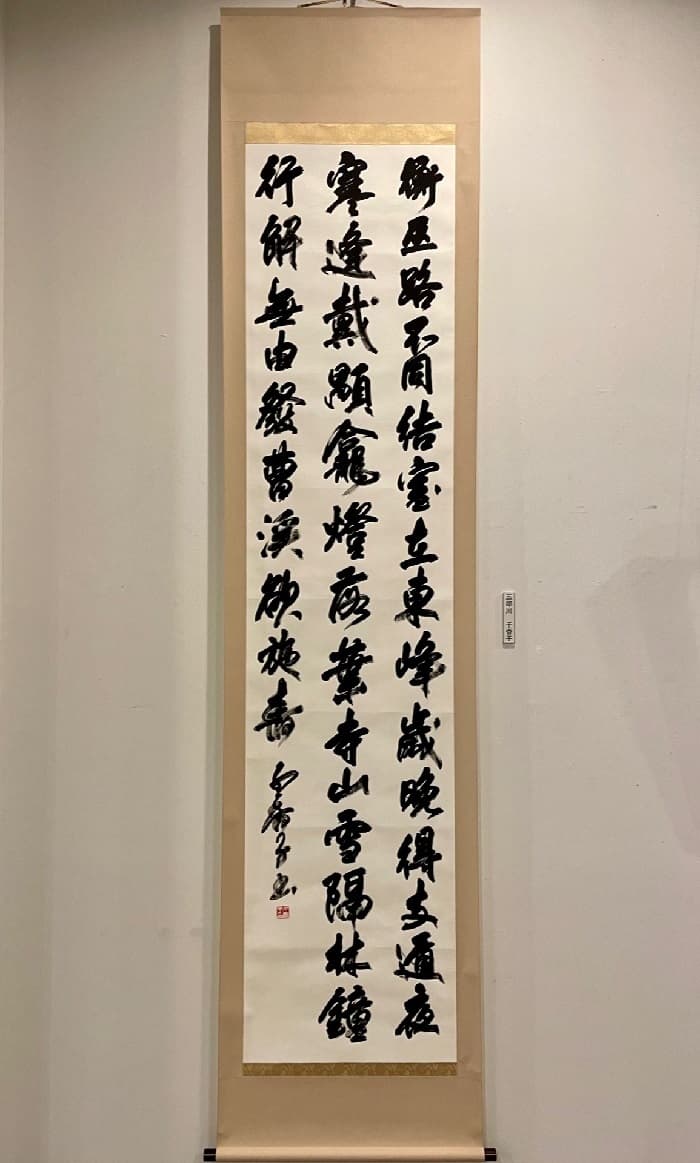 衡巫路不同結室在東峰歲晚得支遁夜
寒逢戴顒龕燈落葉寺山雪隔林鐘
行解無由發曹溪欲施舂